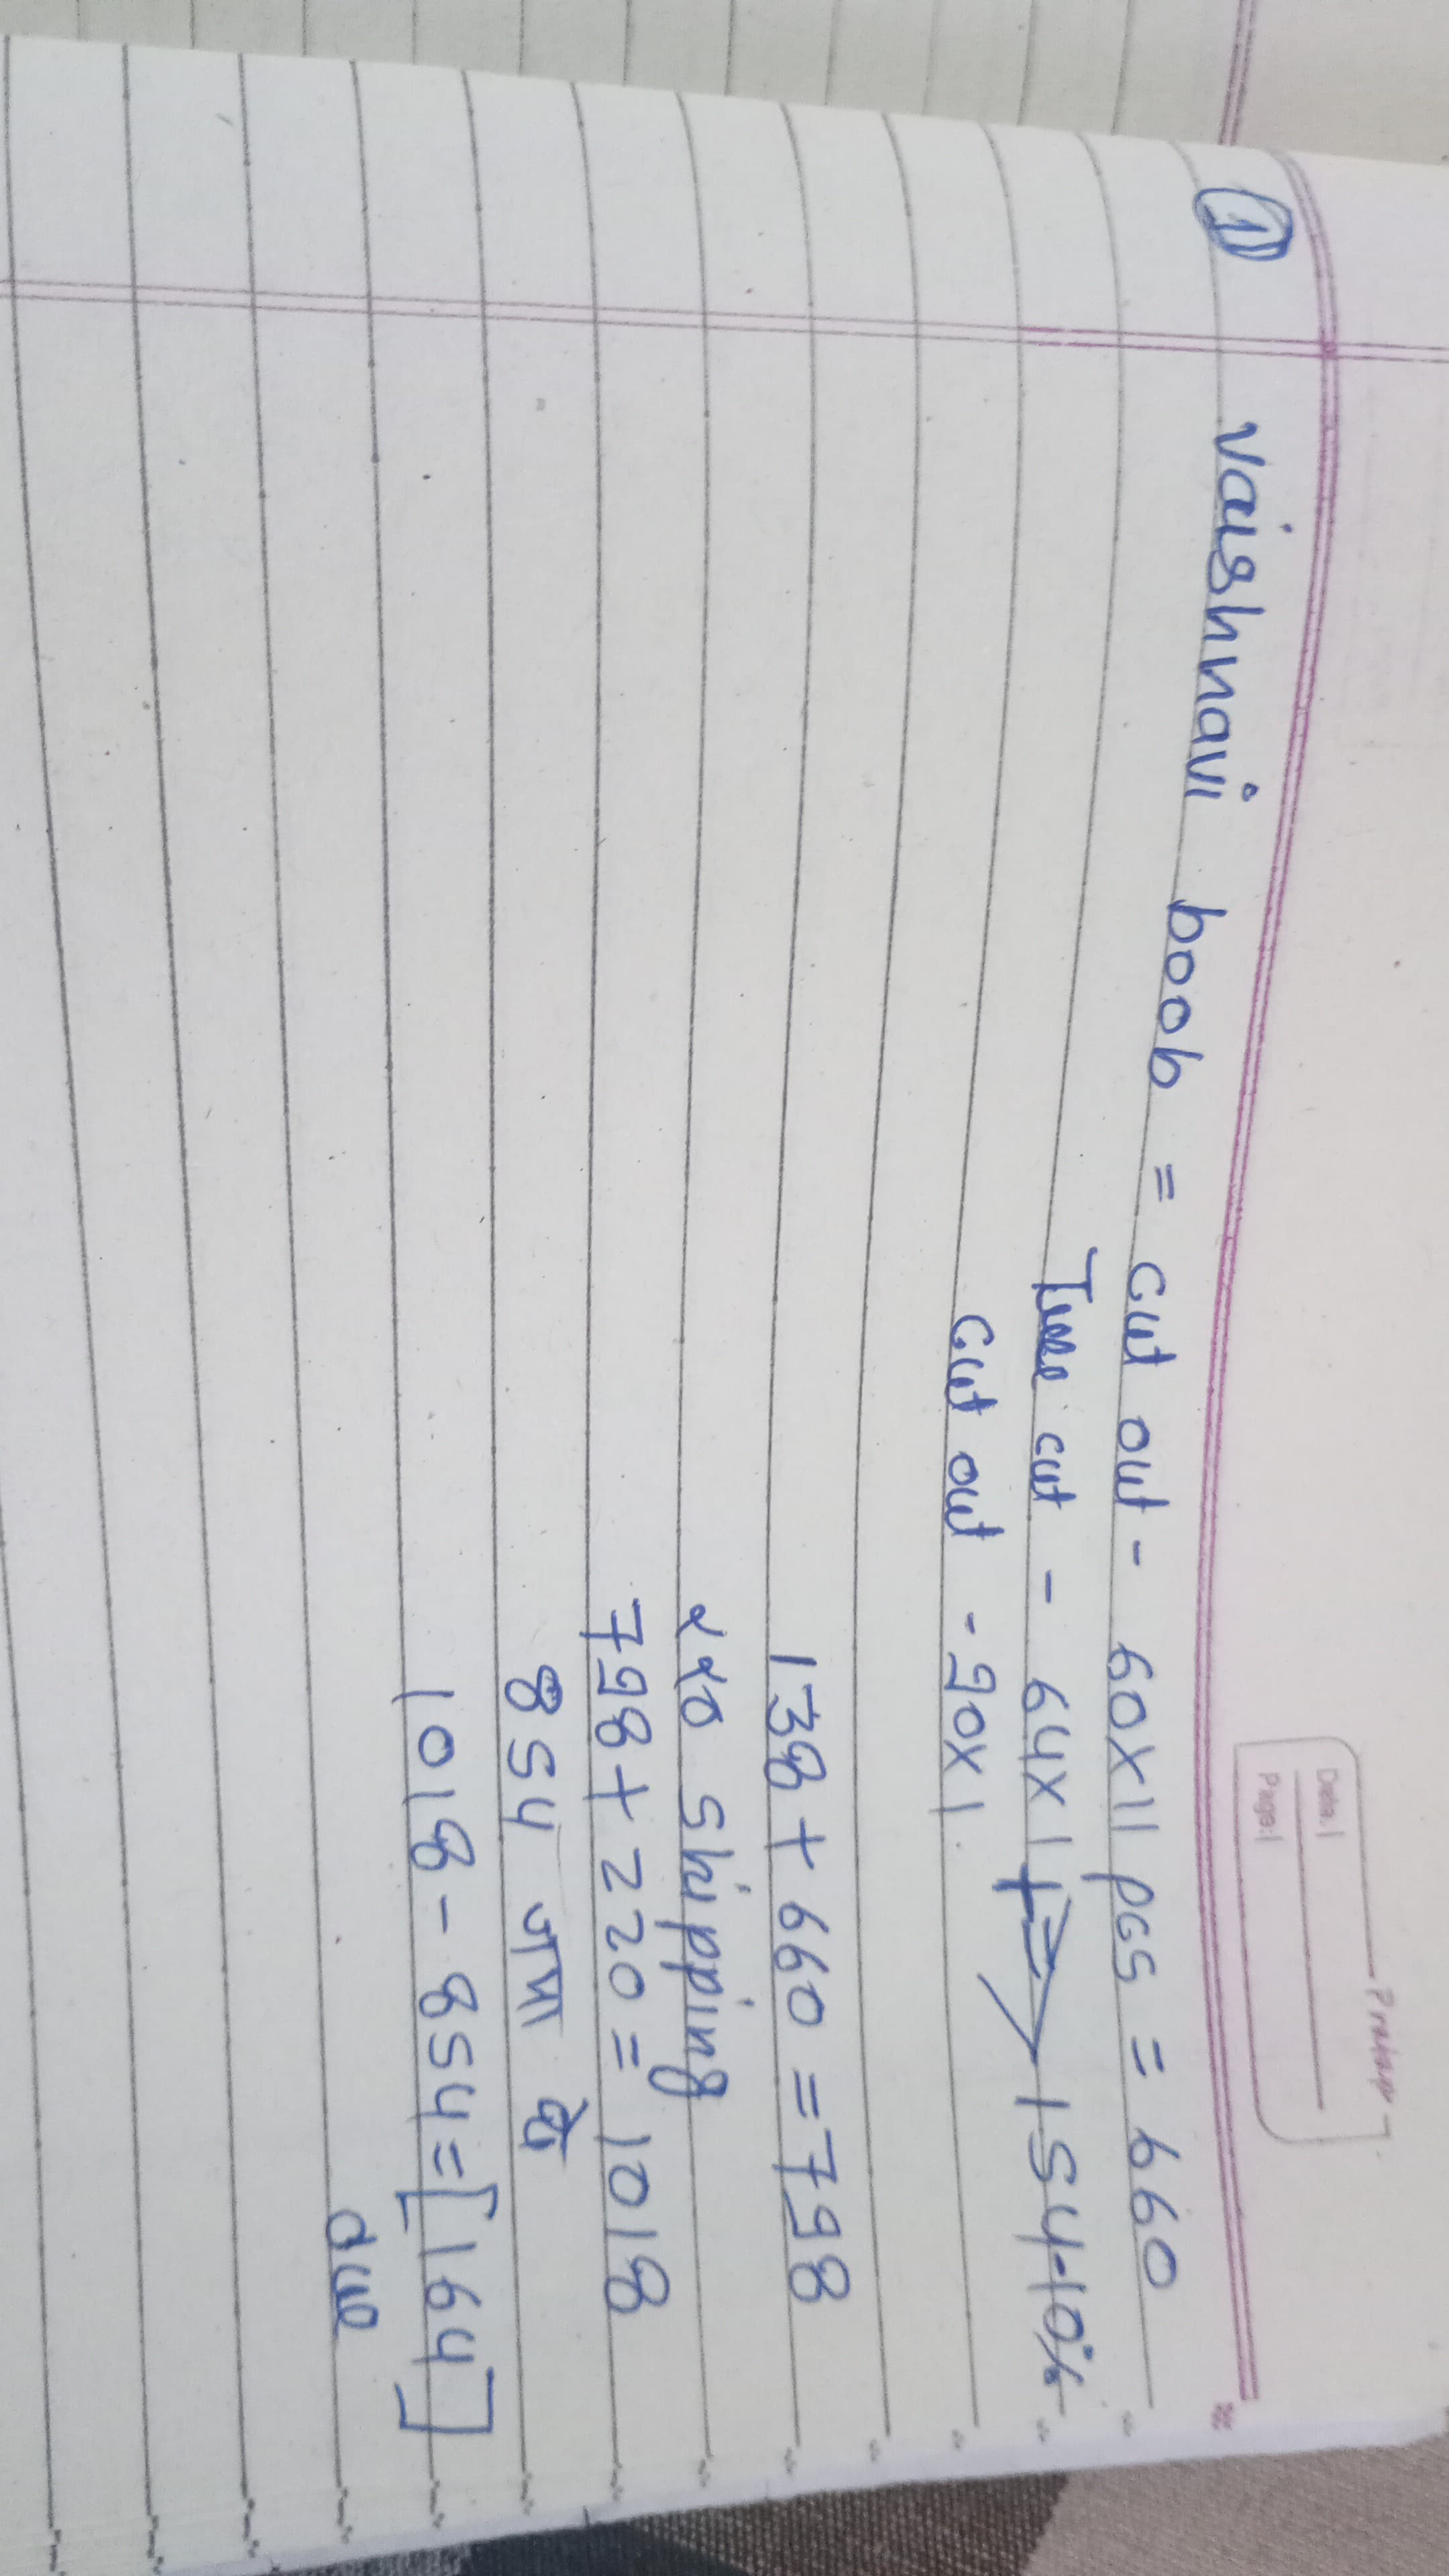 Pratap
Date:
Page:
① vaishnavi boob = cut out - 60x11 pcs = 660
Tree cut - 64x1 = 154-10%
cut out - 90x1
138 + 660 = 798
२२० shipping
798 + 220 = 1018
854 जमा है
1018 - 854 = [164]
due